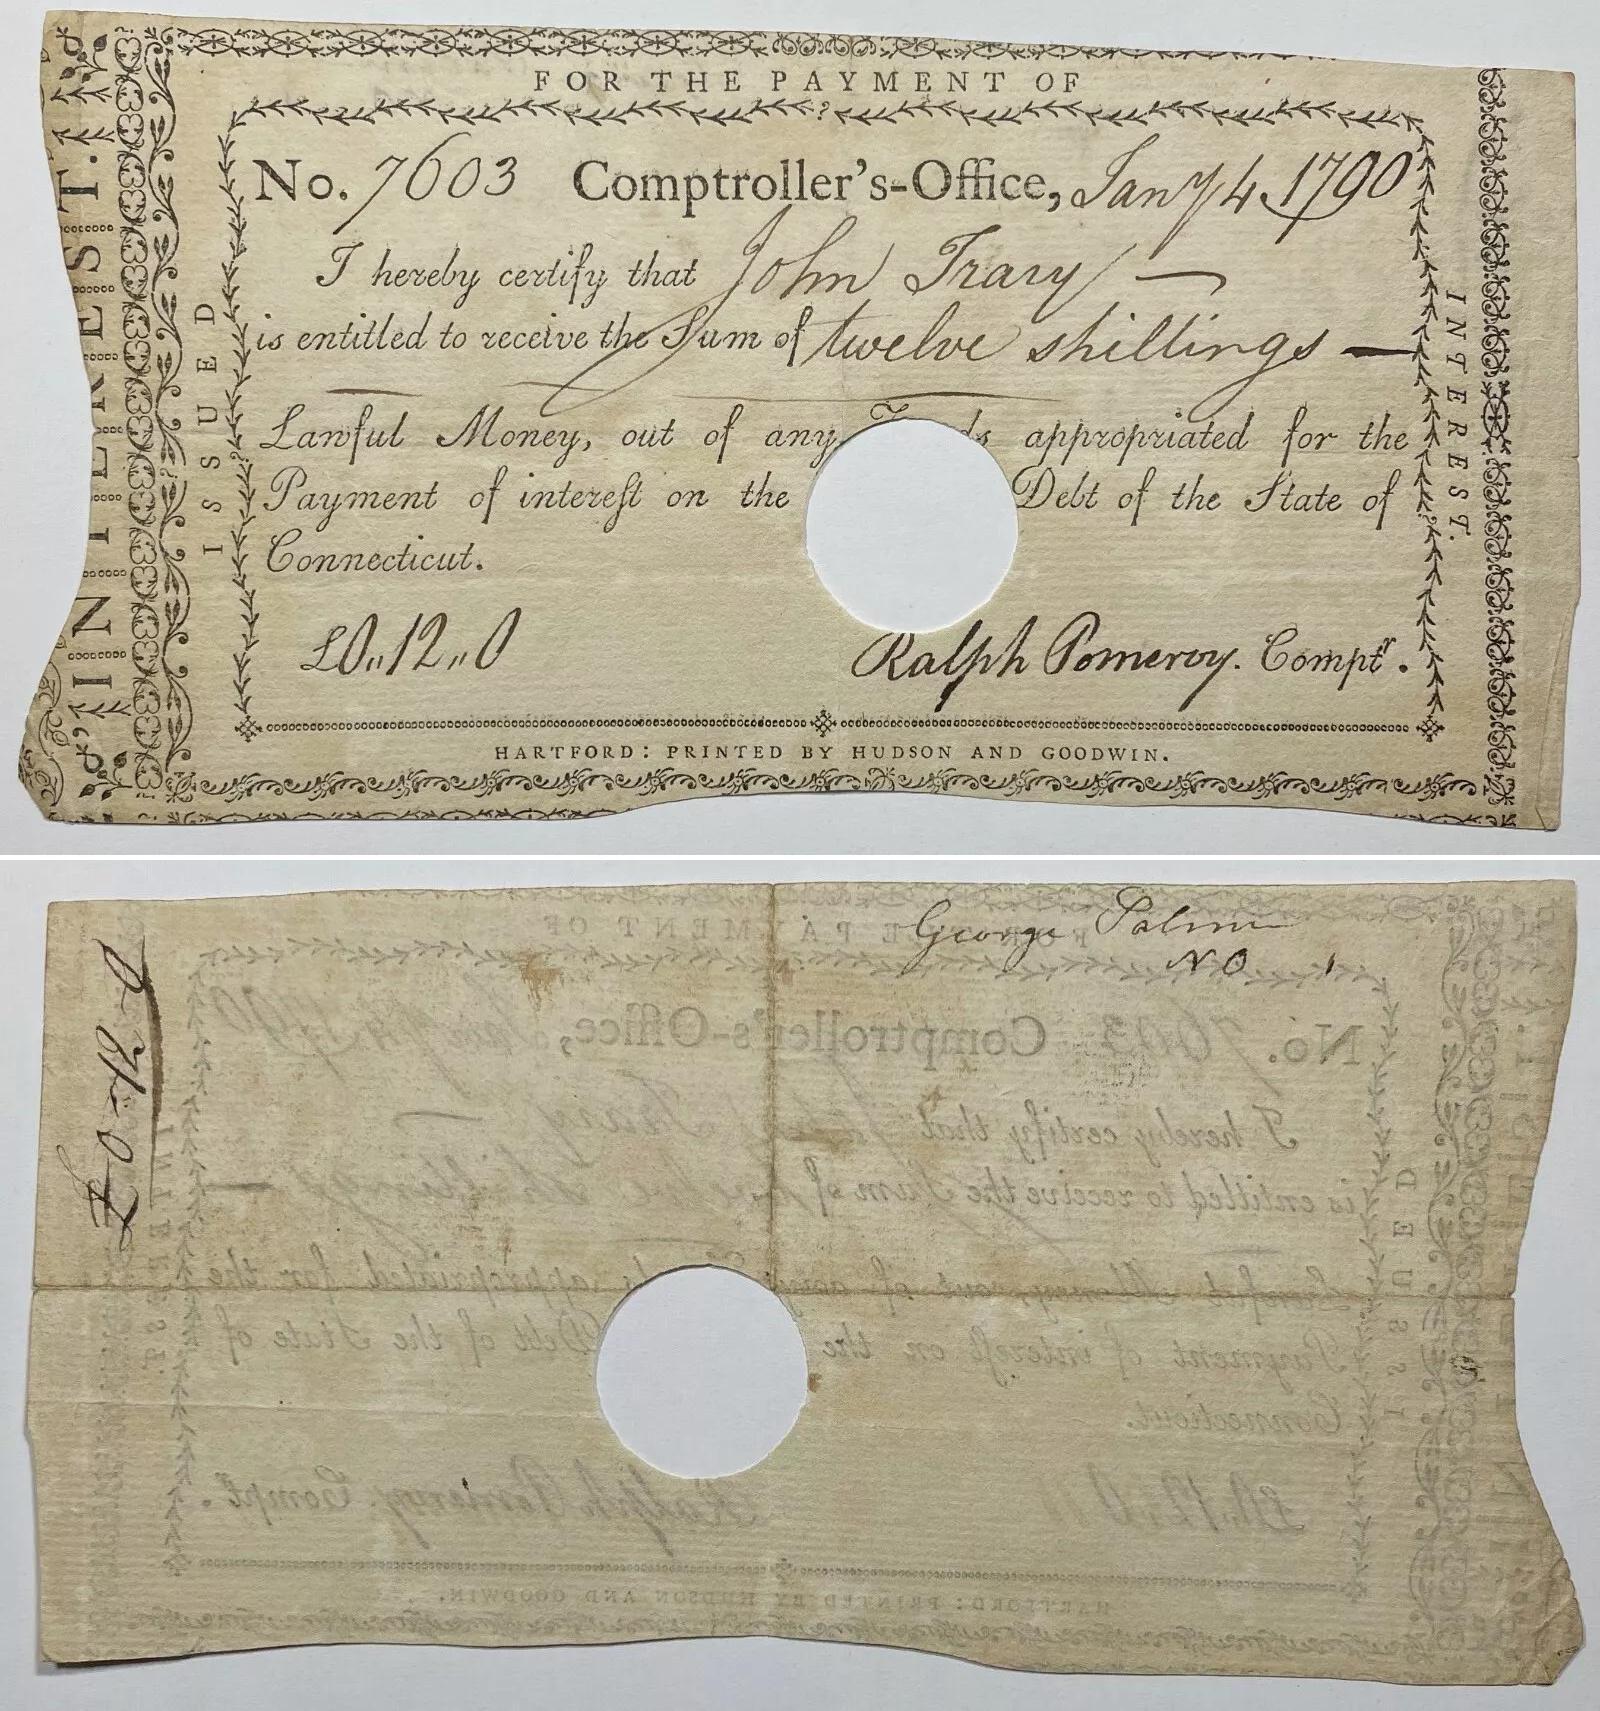 FOR THE PAYMENT OF
INTEREST.
ISSUED
No. 7603 Comptroller's-Office, Jany 4 1790
I hereby certify that John Tracy
is entitled to receive the Sum of twelve shillings
Lawful Money, out of any appropriated for the
Payment of intereſt on the Debt of the State of
Connecticut.
£0,,12,,0 Ralph Pomeroy. Comptr.
INTEREST.
HARTFORD: PRINTED BY HUDSON AND GOODWIN.
George
NO 1